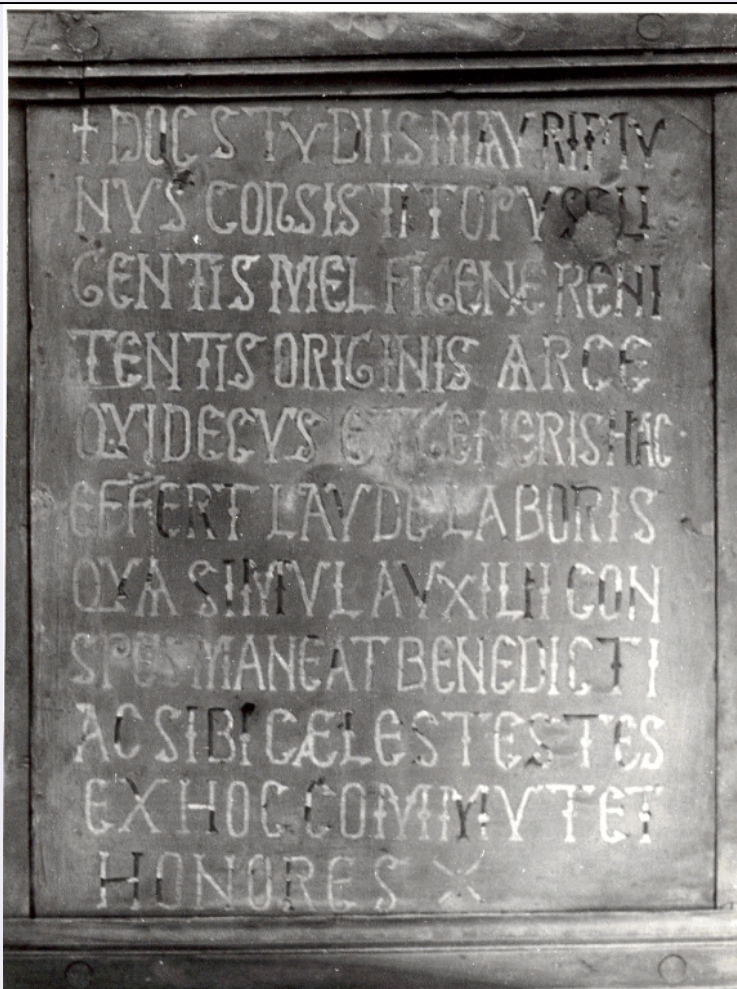 + HOC STVDIIS MAVRI PTV
NVS CONSISTIT OPVS GLI
GENTIS MELFIGENE RENI
TENTIS ORIGINIS ARCE
QVI DECVS ET GENERIS HAC
EFFERT LAVDE LABORIS
QVA SIMVL AVXILII CON
SPES MANEAT BENEDICTI
AC SIBI CÆLESTES TES
EX HOC COMMVTET
HONORES X